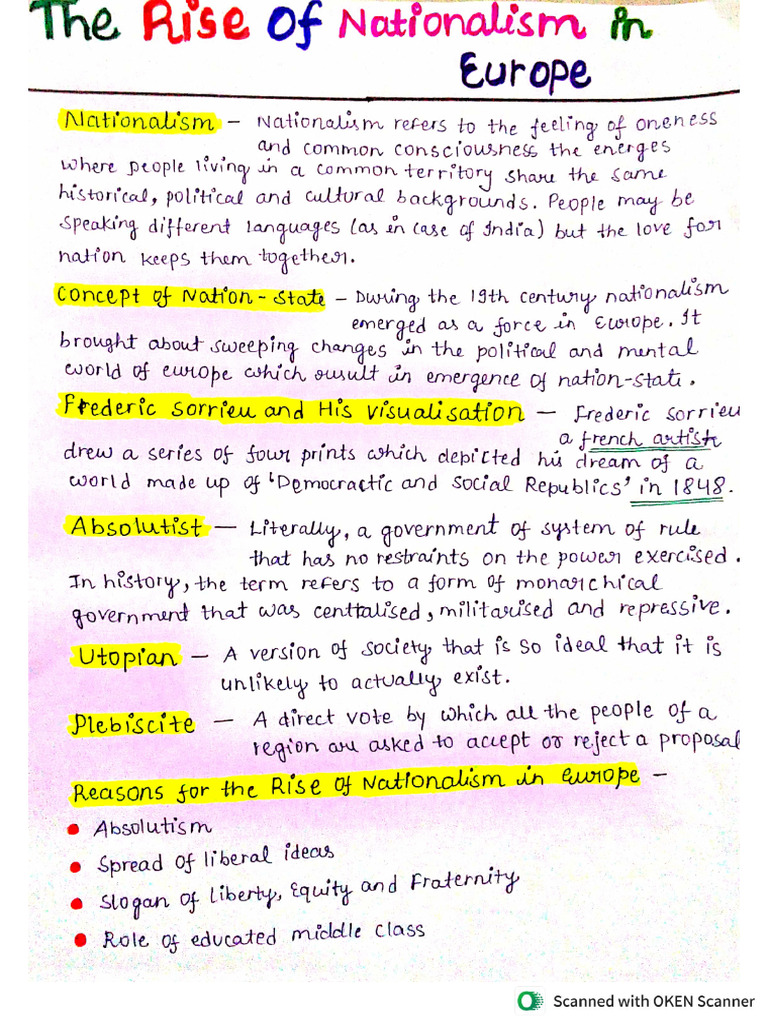 The Rise Of Nationalism in
Europe
Nationalism – Nationalism refers to the feeling of oneness
and common consciousness the energes
where people living in a common territory share the same
historical, political and cultural backgrounds. People may be
speaking different languages (as in case of India) but the love for
nation keeps them together.
Concept of Nation-State – During the 19th century nationalism
emerged as a force in Europe. It
brought about sweeping changes in the political and mental
world of europe which result in emergence of nation-state.
Frederic Sorrieu and His Visualisation – Frederic Sorrieu
a french artist
drew a series of four prints which depicted his dream of a
world made up of 'Democractic and Social Republics' in 1848.
Absolutist – Literally, a government of system of rule
that has no restraints on the power exercised.
In history, the term refers to a form of monarchical
government that was centtalised, militarised and repressive.
Utopian – A version of society that is so ideal that it is
unlikely to actually exist.
Plebiscite – A direct vote by which all the people of a
region are asked to accept or reject a proposal
Reasons for the Rise Of Nationalism in Europe –
• Absolutism
• Spread of liberal ideas
• Slogan of liberty, Equity and Fraternity
• Role of educated middle class
Scanned with OKEN Scanner